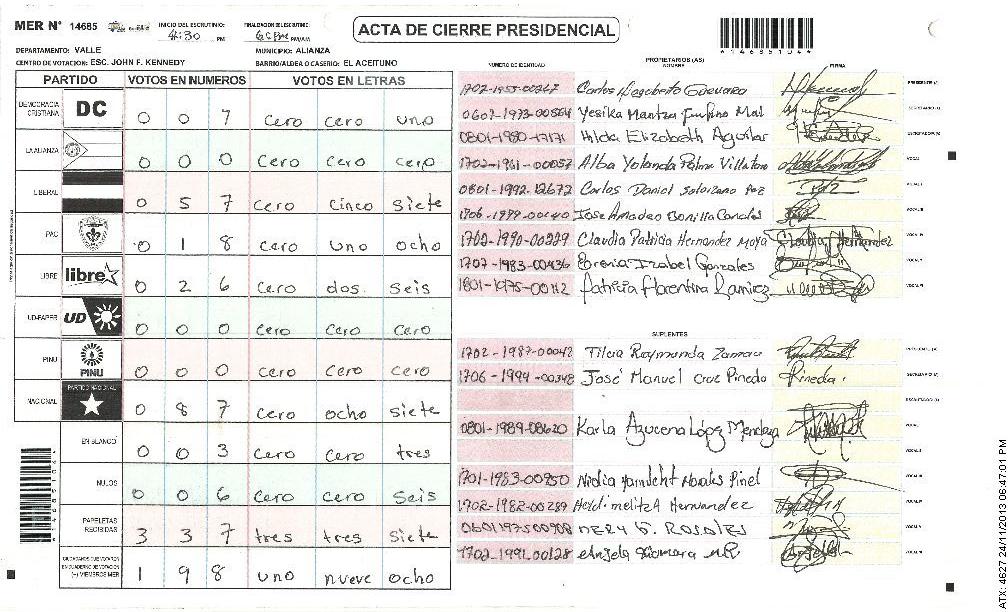 MER Nº 14685 INICIO DEL ESCRUTINIO: 4:30 PM FINALIZACION ESCRUTINIO: PM/AM
ACTA DE CIERRE PRESIDENCIAL
DEPARTAMENTO: VALLE MUNICIPIO: ALIANZA
CENTRO DE VOTACION: ESC. JOHN F. KENNEDY BARRIO/ALDEA O CASERIO: EL ACEITUNO
PARTIDO VOTOS EN NUMEROS VOTOS EN LETRAS
DEMOCRACIA CRISTIANA DC 0 0 7 cero cero uno
LA ALIANZA 0 0 0 cero cero cero
LIBERAL 0 5 7 cero cinco siete
PAC 0 1 8 cero uno ocho
LIBRE libre 0 2 6 cero dos seis
UD-FAPER UD 0 0 0 cero cero cero
PINU PINU 0 0 0 cero cero cero
NACIONAL PARTIDO NACIONAL 0 8 7 cero ocho siete
EN BLANCO 0 0 3 cero cero tres
NULOS 0 0 6 cero cero seis
PAPELETAS RECIBIDAS 3 3 7 tres tres siete
CIUDADANOS QUE VOTARON EN CUADERNO DE VOTACION (+) MIEMBROS MER 1 9 8 uno nueve ocho
NUMERO DE IDENTIDAD PROPIETARIOS (AS) NOMBRE FIRMA
Carlos Guevara
0602-1973-00564 Yesika
Hilda Elizabeth Aguilar
1702-1961-00057 Alba Yolanda
0801-1992-12672 Carlos Daniel
1706-1999-00440 Jose Amadeo Bonilla
1702-1990-00229 Claudia Patricia Hernandez Moya
1707-1983-00436 Izabel Gonzales
1801-1975-00112 Patricia Florentina Ramirez
SUPLENTES
1702-1987-00042 Raymunda
1706-1994-00348 José Manuel Cruz Pineda Pineda
0801-1989-08620 Karla Azucena López Mendoza
1701-1983-00950
1702-1982-00289 Hernandez
ROSALES
1702-1991-00128
14685104
ATX: 4627 24/11/2013 06:47:01 PM